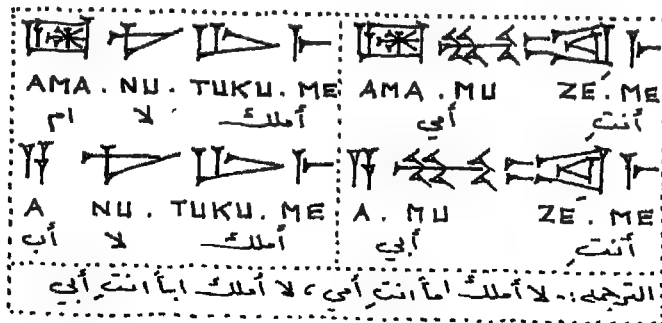 AMA . NU . TUKU . ME AMA . MU ZÉ . ME
ام لا أملك أمي أنتِ
A NU . TUKU . ME A . MU ZÉ . ME
أب لا أملك أبي أنتِ
الترجمة:- لا أملك اماً انتِ أمي، لا أملك اباً انتِ أبي